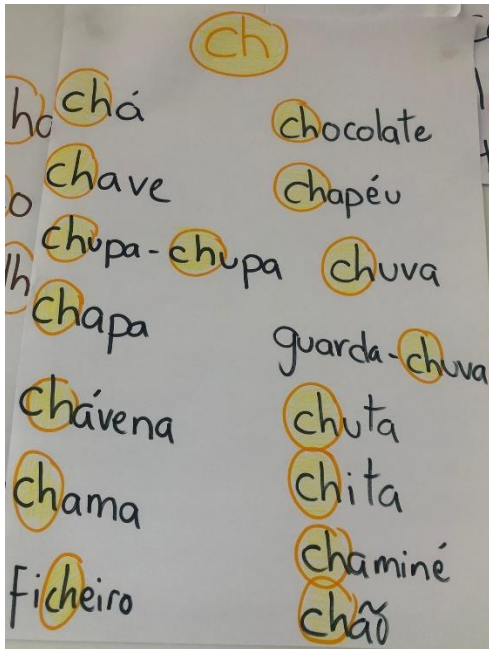 ch
chá
chave
chupa-chupa
chapa
chávena
chama
ficheiro
chocolate
chapéu
chuva
guarda-chuva
chuta
chita
chaminé
chão